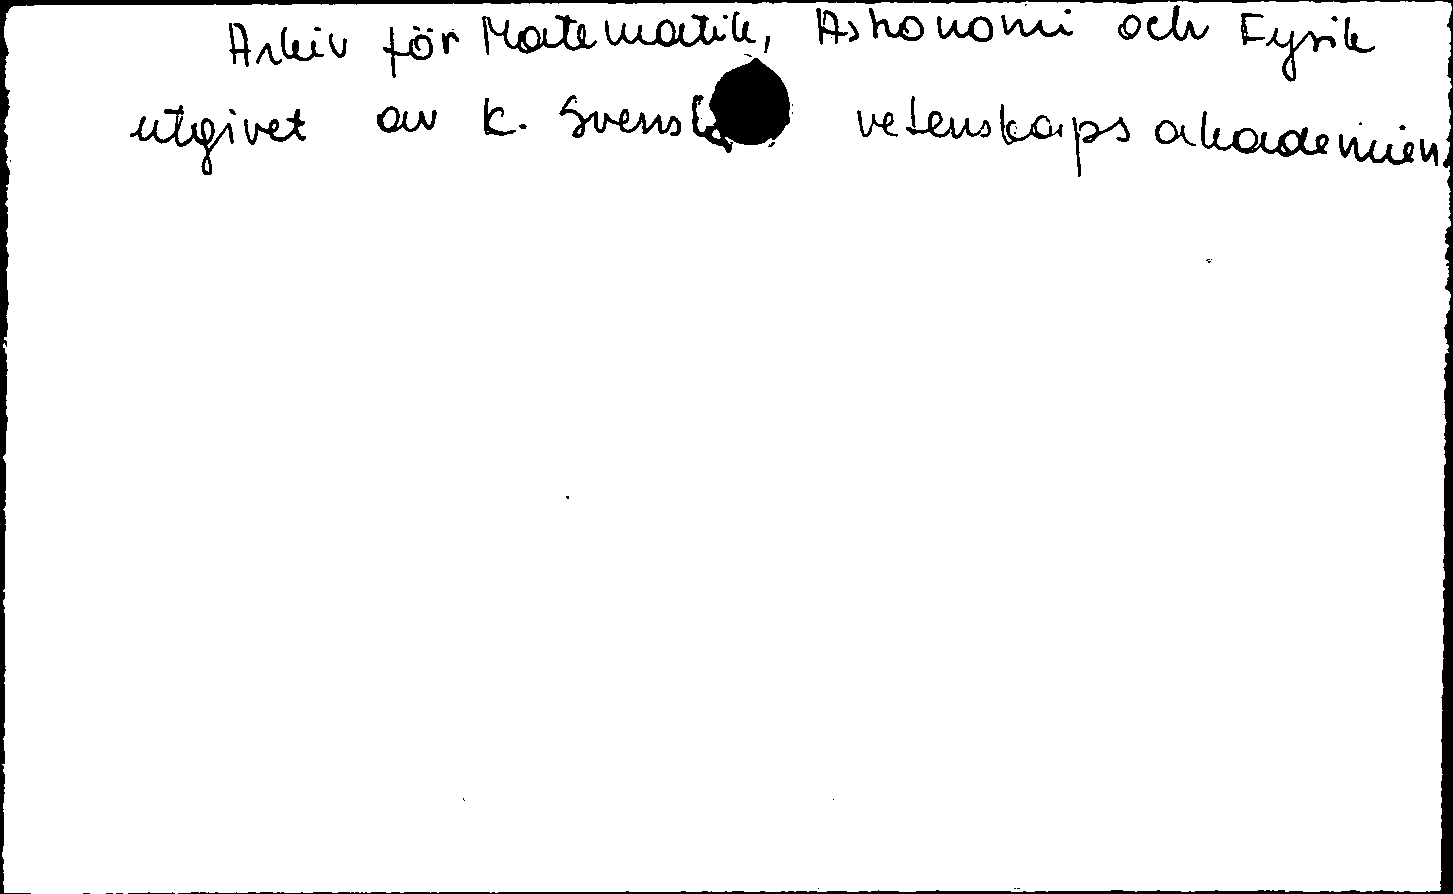 Arkiv för Matematik, Astronomi och Fysik
utgivet av K. Svenska vetenskapsakademien.